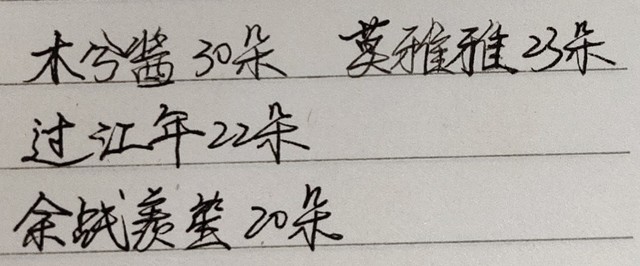 木兮酱30朵 莫雅雅23朵
过江年22朵
余战羡蛰20朵